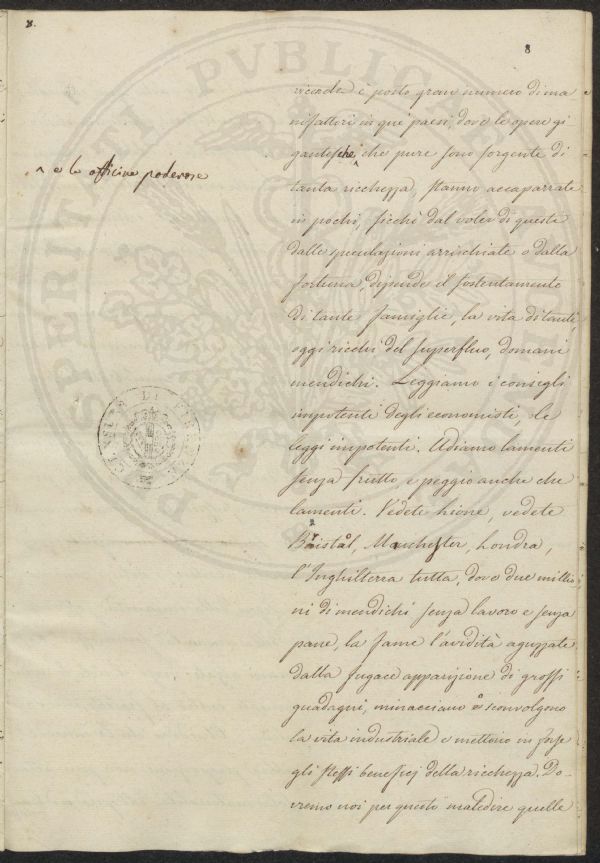 8.
8
vicende è posto gran numero di ma
nifattori in que' paesi, dove le opere gi
gantesche ^ che pure sono sorgente di
^ e le officine poderose
tanta ricchezza, stanno accaparrate
in pochi, sicchè dal voler di questi
dalle speculazioni arrischiate o dalla
fortuna, dipende il sostentamento
di tante famiglie, la vita di tanti,
oggi ricchi del superfluo, domani
mendichi. Leggiamo i consigli
impotenti degli economisti, le
leggi impotenti. Udiamo lamenti
senza frutto e peggio anche che
lamenti. Vedete Lione, vedete
Bristol, Manchester, Londra,
l'Inghilterra tutta, dove due millio
ni di mendichi senza lavoro e senza
pane, la fame l'avidità aguzzate
dalla fugace apparizione di grossi
guadagni, minacciano o sconvolgono
la vita industriale e mettono in forse
gli stessi beneficj della ricchezza. Do-
vremo noi per questo maledire quelle